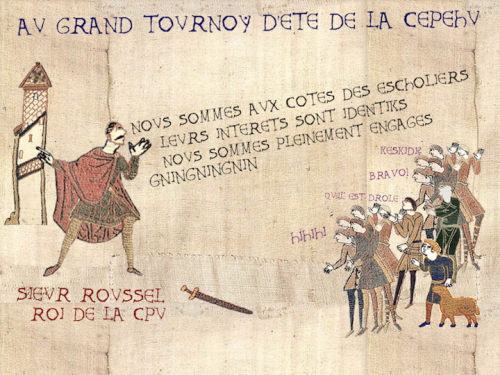 AV GRAND TOVRNOY D'ETE DE LA CEPEHV
NOVS SOMMES AVX COTES DES ESCHOLIERS
LEVRS INTERETS SONT IDENTIKS
NOVS SOMMES PLEINEMENT ENGAGES
GNINGNINGNIN
KESKIDI
BRAVO!
QVIL EST DROLE
hihihi
SIEVR ROVSSEL
ROI DE LA CPV